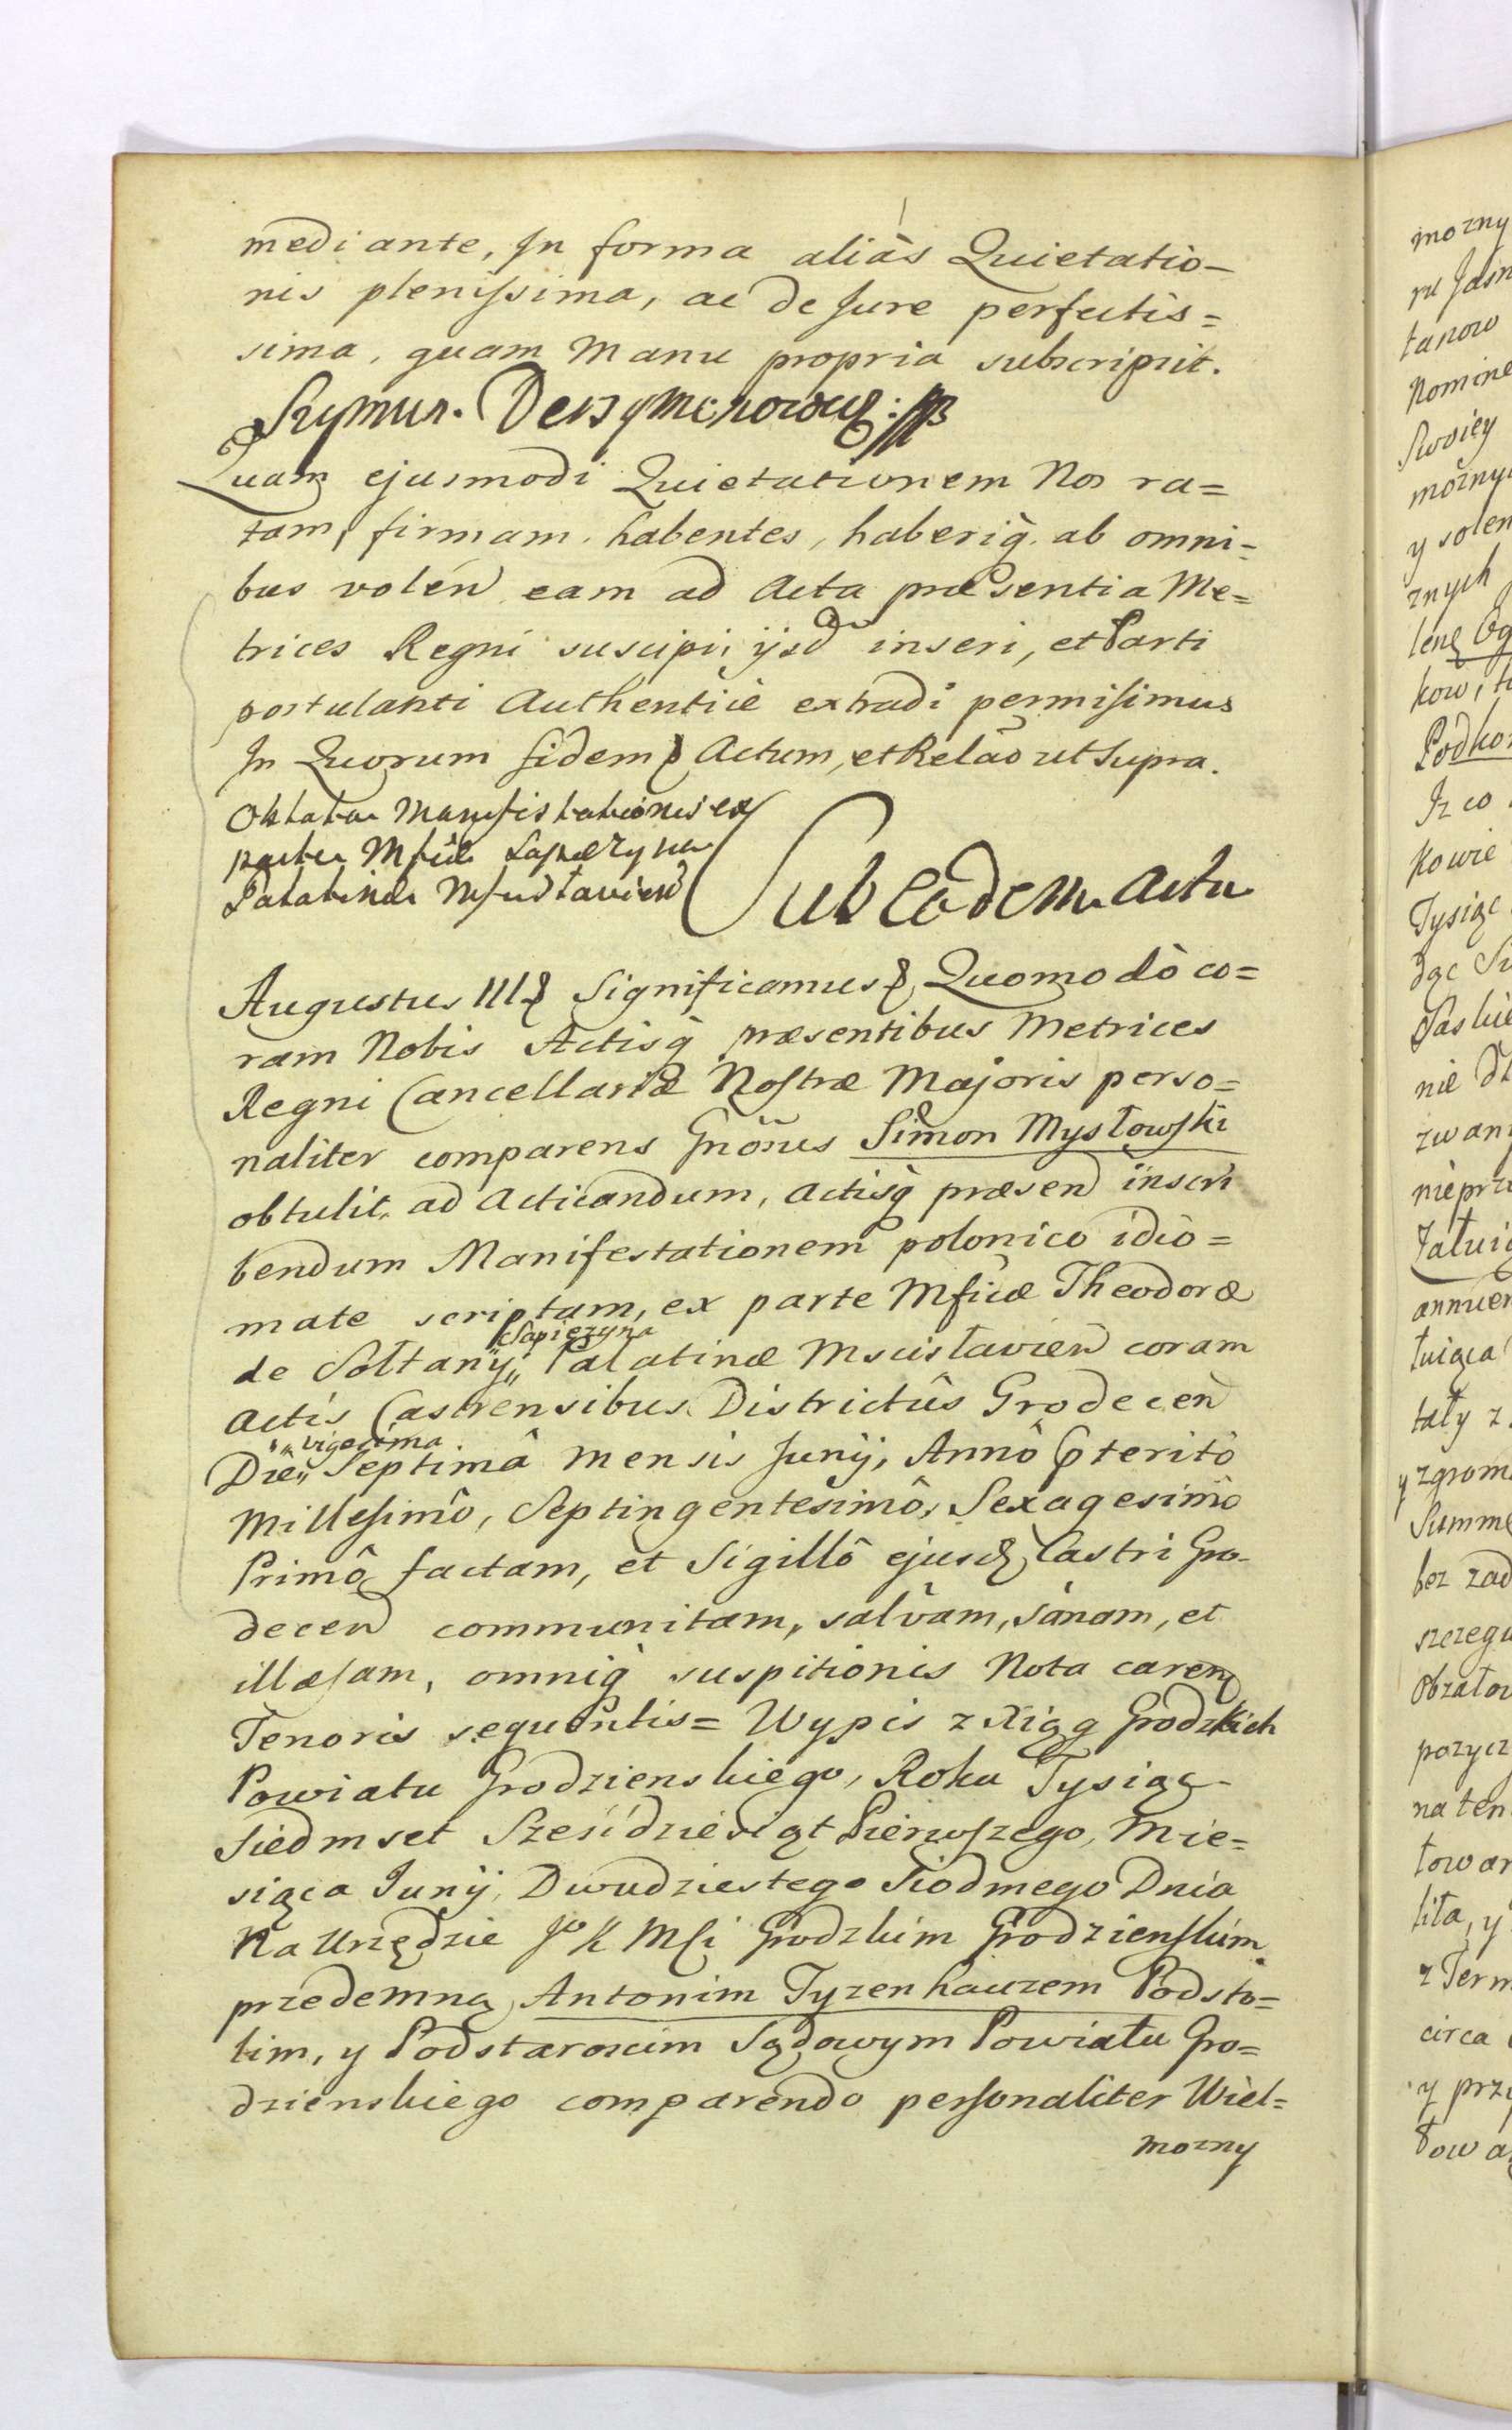 mediante, In forma aliàs Quietatio-
nis plenissima, ac de Jure perfectis=
sima, quam Manu propria subscripsit.
Quam ejusmodi Quietationem Nos ra=
tam, firmam habentes, haberiq̀ ab omni=
bus volen̄ eam ad Acta præsentia Me=
trices Regni suscipi, ijsd inseri, et Parti
postulanti Authenticè extradi permisimus
In Quorum fidem Actum, et Relão ut Supra.
Oblata Manifestationis ex
parte Mficæ Sapiezyna
Palatinæ Mscislavien̄
Sub Eodem Actu
Augustus III Significamus Quomodò co=
ram Nobis Actisq̀ præsentibus Metrices
Regni Cancellariæ Nostræ Majoris perso=
naliter comparens Gñosus Simon Mysłowski
obtulit ad Acticandum, Actisq̀ præsen̄ inscri
bendum Manifestationem polonico idio=
mate scriptam, ex parte Mficæ Theodoræ
Sapiezyna
de Sołtany,, Palatinæ Mscisławien̄ coram
Actis Castrensibus Districtûs Grodecen̄
,, vigesima
Die,, Septimâ Mensis Junij, Annô Pteritô
Millesimô, Septingentesimô, Sexagesimô
Primô factam, et Sigillô ejusd Castri Gro-
decen̄ communitam, salvam, sanam, et
illæsam, omniq̀ suspitionis Nota caren
Tenoris sequentis= Wypis z Xiąg Grodzkich
Powiatu Grodzienskiego, Roku Tysiąc
Siedmset Sześćdziesiąt Pierwszego, Mie=
siąca Junij, Dwudziestego Siodmego Dnia
Na Urzędzie Jo K Msci Grodzkim Grodzienskim
przedemną Antonim Tyzenhauzem Podsto=
lim, y Podstaroscim Sądowym Powiatu Gro=
dzienskiego comparendo personaliter Wiel=
mozny
mozny
tanow
Nomine
Swoiey
y solen
znych
Iz co
kowie
Tysiąc
nie
annuen
tuiąca
Summ
bez zad
na ten
circa
y prz